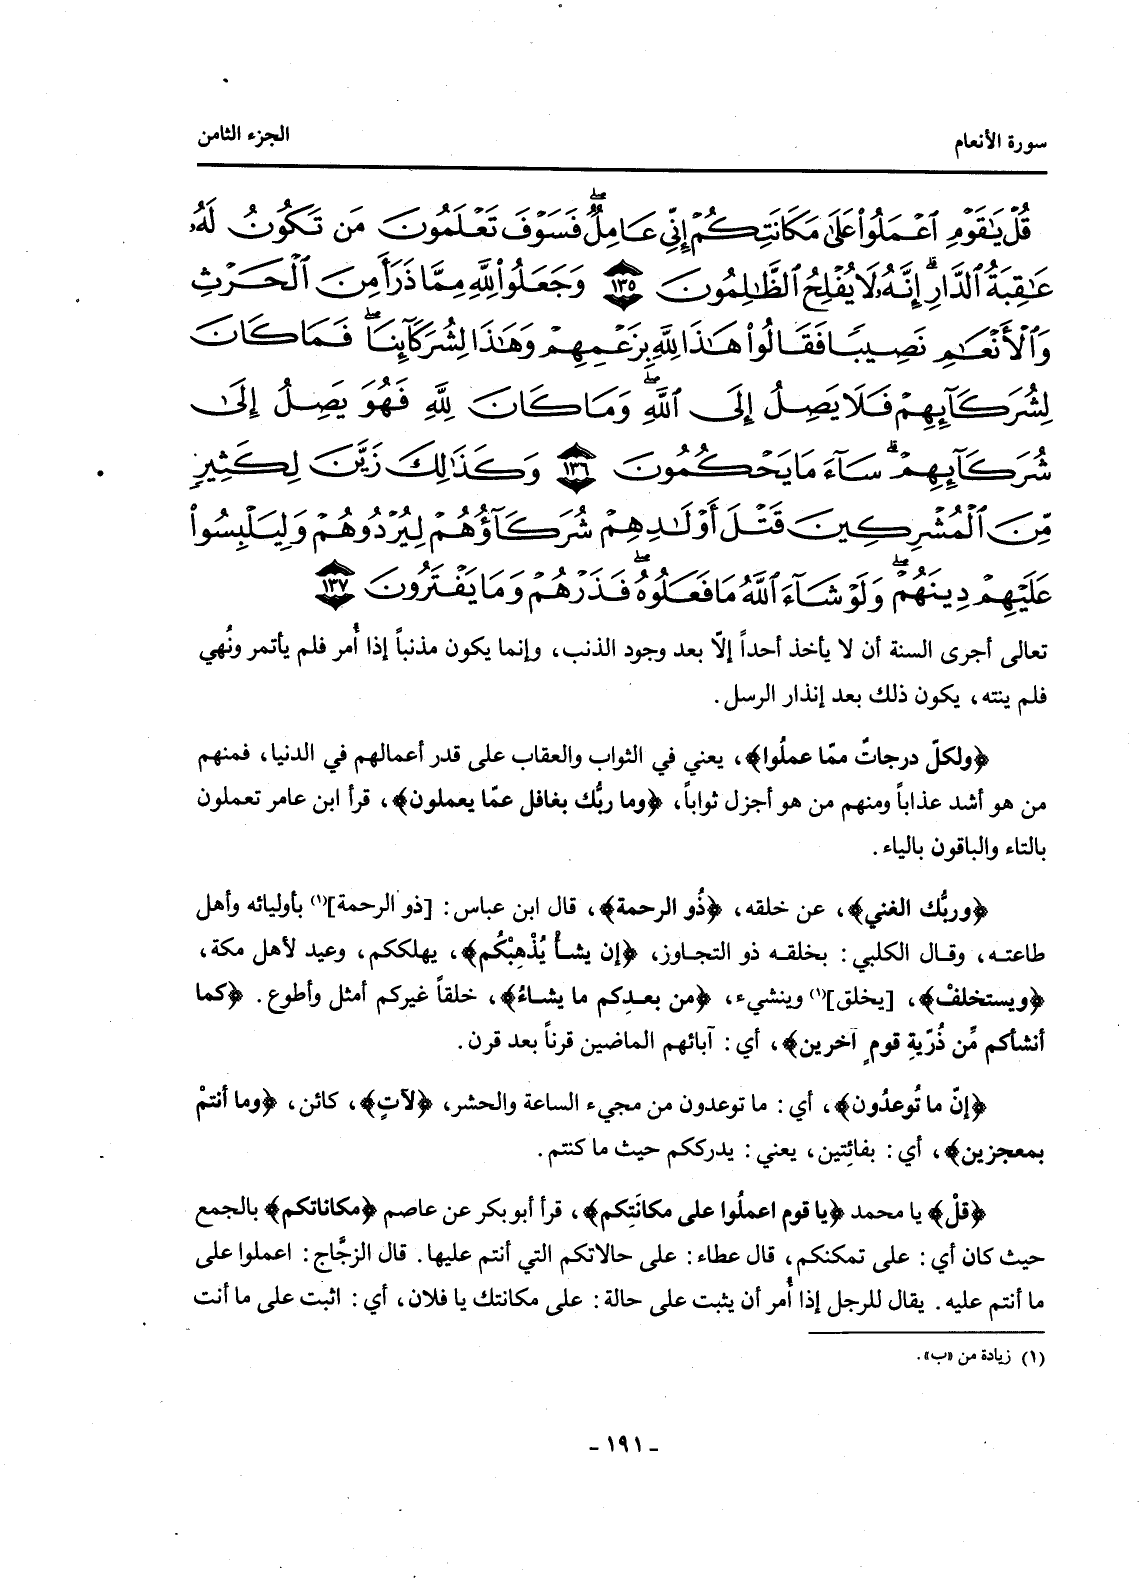 سورة الأنعام
الجزء الثامن
قُلْ يَٰقَوْمِ ٱعْمَلُوا۟ عَلَىٰ مَكَانَتِكُمْ إِنِّى عَامِلٌۖ فَسَوْفَ تَعْلَمُونَ مَن تَكُونُ لَهُۥ
عَٰقِبَةُ ٱلدَّارِۗ إِنَّهُۥ لَا يُفْلِحُ ٱلظَّٰلِمُونَ ١٣٥ وَجَعَلُوا۟ لِلَّهِ مِمَّا ذَرَأَ مِنَ ٱلْحَرْثِ
وَٱلْأَنْعَٰمِ نَصِيبًا فَقَالُوا۟ هَٰذَا لِلَّهِ بِزَعْمِهِمْ وَهَٰذَا لِشُرَكَآئِنَاۖ فَمَا كَانَ
لِشُرَكَآئِهِمْ فَلَا يَصِلُ إِلَى ٱللَّهِۖ وَمَا كَانَ لِلَّهِ فَهُوَ يَصِلُ إِلَىٰ
شُرَكَآئِهِمْۗ سَآءَ مَا يَحْكُمُونَ ١٣٦ وَكَذَٰلِكَ زَيَّنَ لِكَثِيرٍ
مِّنَ ٱلْمُشْرِكِينَ قَتْلَ أَوْلَٰدِهِمْ شُرَكَآؤُهُمْ لِيُرْدُوهُمْ وَلِيَلْبِسُوا۟
عَلَيْهِمْ دِينَهُمْۖ وَلَوْ شَآءَ ٱللَّهُ مَا فَعَلُوهُۖ فَذَرْهُمْ وَمَا يَفْتَرُونَ ١٣٧
تعالى أجرى السنة أن لا يأخذ أحداً إلاّ بعد وجود الذنب، وإنما يكون مذنباً إذا أُمر فلم يأتمر ونُهي
فلم ينته، يكون ذلك بعد إنذار الرسل.
﴿ولكلّ درجاتٌ ممّا عملُوا﴾، يعني في الثواب والعقاب على قدر أعمالهم في الدنيا، فمنهم
من هو أشد عذاباً ومنهم من هو أجزل ثواباً، ﴿وما ربُّك بغافل عمّا يعملون﴾، قرأ ابن عامر تعملون
بالتاء والباقون بالياء.
﴿وربُّك الغني﴾، عن خلقه، ﴿ذُو الرحمة﴾، قال ابن عباس: [ذو الرحمة](١) بأوليائه وأهل
طاعته، وقال الكلبي: بخلقه ذو التجاوز، ﴿إن يشأْ يُذْهِبْكُم﴾، يهلككم، وعيد لأهل مكة،
﴿ويستخلفْ﴾، [يخلق](١) وينشيء، ﴿من بعدِكم ما يشاءُ﴾، خلقاً غيركم أمثل وأطوع. ﴿كما
أنشأكم مِّن ذُرّيةِ قومٍ آخرين﴾، أي: آبائهم الماضين قرناً بعد قرن.
﴿إنّ ما تُوعدُون﴾، أي: ما توعدون من مجيء الساعة والحشر، ﴿لآتٍ﴾، كائن، ﴿وما أنتمْ
بمعجزين﴾، أي: بفائِتين، يعني: يدرككم حيث ما كنتم.
﴿قلْ﴾ يا محمد ﴿يا قوم اعملُوا على مكانَتِكم﴾، قرأ أبو بكر عن عاصم ﴿مكاناتكم﴾ بالجمع
حيث كان أي: على تمكنكم، قال عطاء: على حالاتكم التي أنتم عليها. قال الزجَّاج: اعملوا على
ما أنتم عليه. يقال للرجل إذا أُمر أن يثبت على حالة: على مكانتك يا فلان، أي: اثبت على ما أنت
(١) زيادة من «ب».
- ١٩١ -